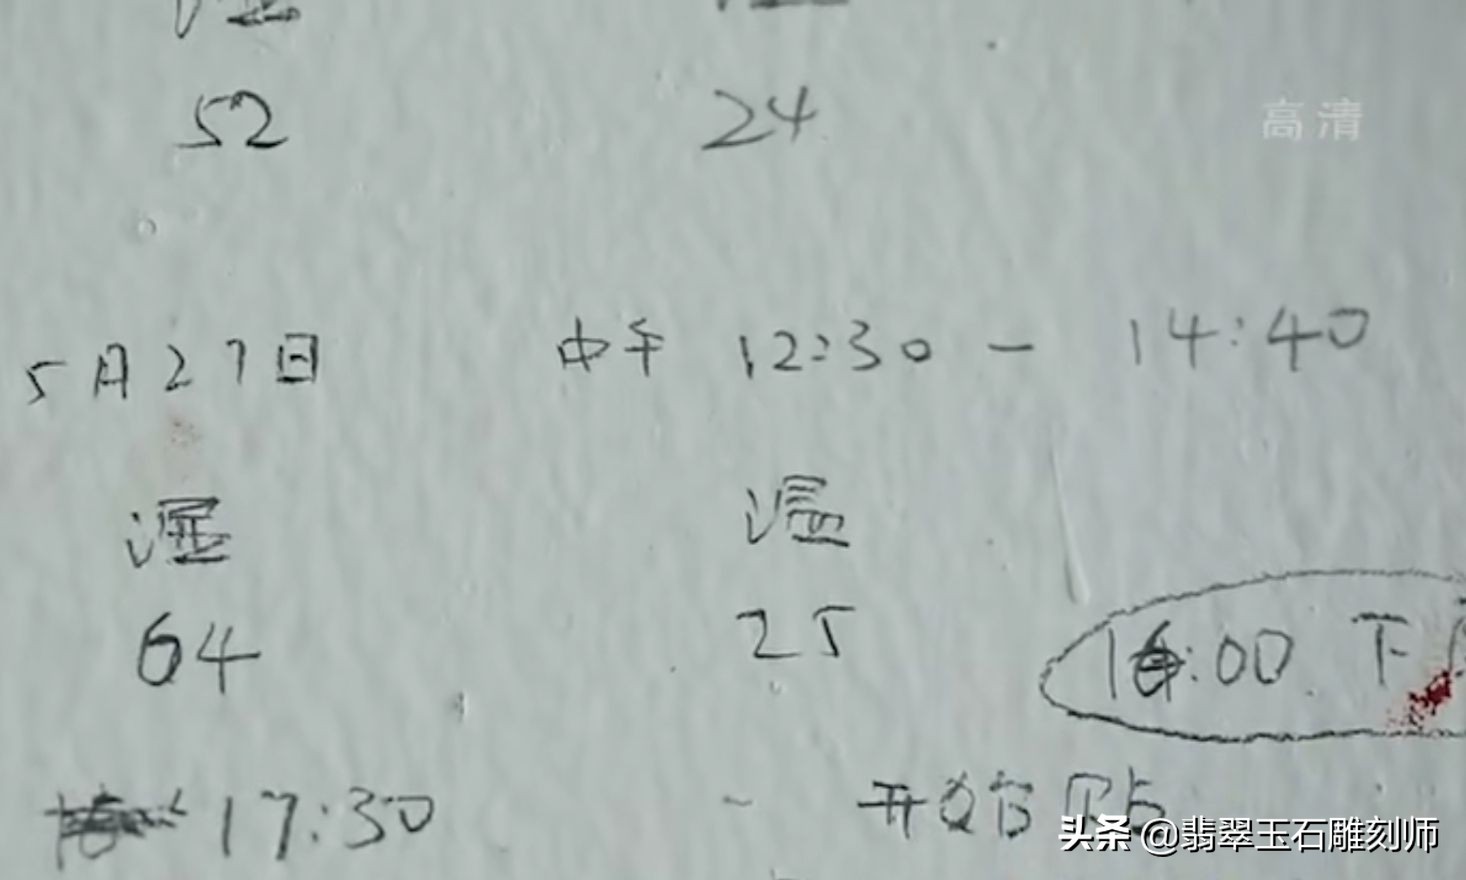 52 24
高清
5月27日 中午 12:30 - 14:40
湿 温
64 25
16:00 下
17:30 - 开始贴
头条 @翡翠玉石雕刻师